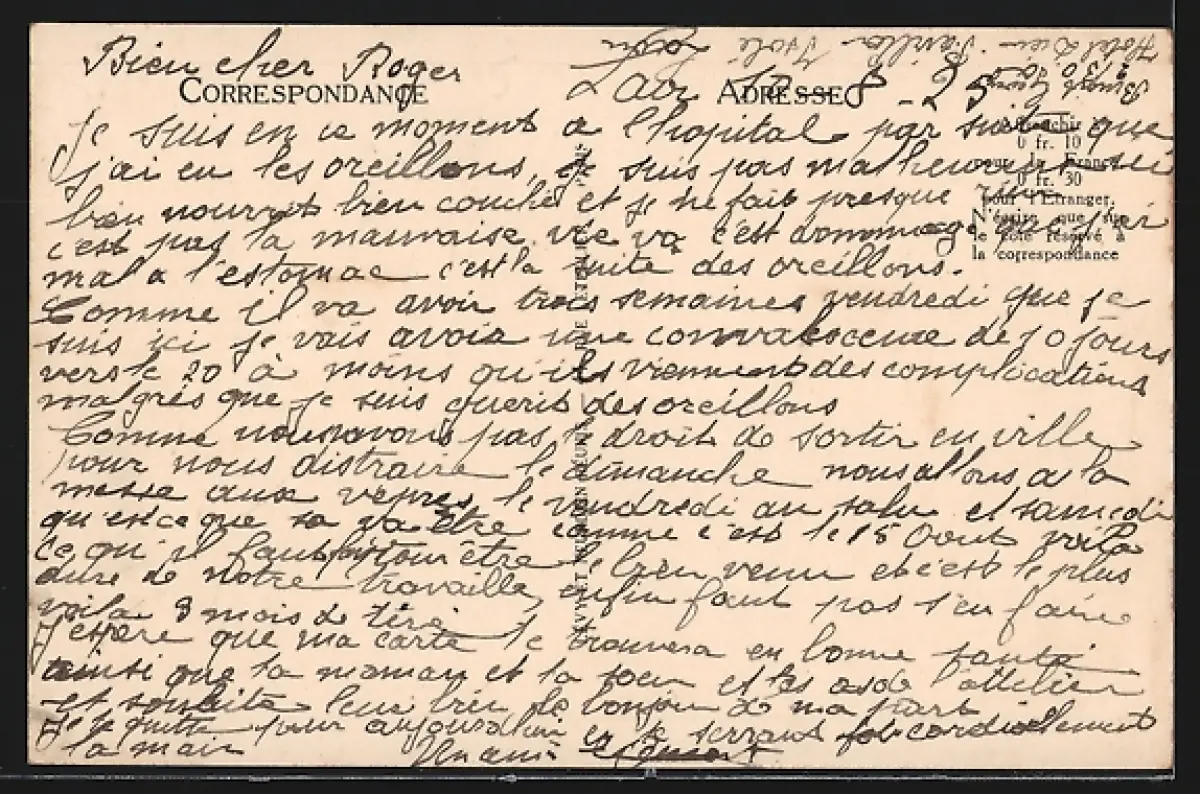 Bien cher Roger
CORRESPONDANCE
ADRESSE
8 - 25
Je suis en ce moment a l'hopital par suite que
j'ai eu les oreillons, je suis pas malheureux
bien nourrit bien couché et je ne fait presque rien
c'est pas la mauvaise vie va c'est dommage que j'ai
mal a l'estomac c'est la suite des oreillons.
Comme il va avoir trois semaines vendredi que je
suis ici je vais avoir une convalescence de 10 jours
vers le 20 à moins qu'ils viennent des complications
malgrés que je suis guerit des oreillons
Comme nous avons pas le droit de sortir en ville
pour nous distraire le dimanche nous allons a la
messe aux vepres le vendredi au salu et samedi
qu'est ce que sa va être comme c'est le 15 Aout voila
ce qu'il faut pour être le bien venu et c'est le plus
dure de notre travaille, enfin faut pas s'en faire
voila 3 mois de tiré
J'espère que ma carte te trouvera en bonne santé
ainsi que ta maman et ta soeur et les as de l'attelier
et souhaite leur bien le bonjour de ma part
Je te quitte pour aujourd'hui en te serrant cordialement
la main
Un ami
Affranchir
0 fr. 10
pour la France
0 fr. 30
pour l'Etranger.
N'écrire que sur
le côté réservé à
la correspondance
Hotel Dieu Pavillon Isolé
Lyon